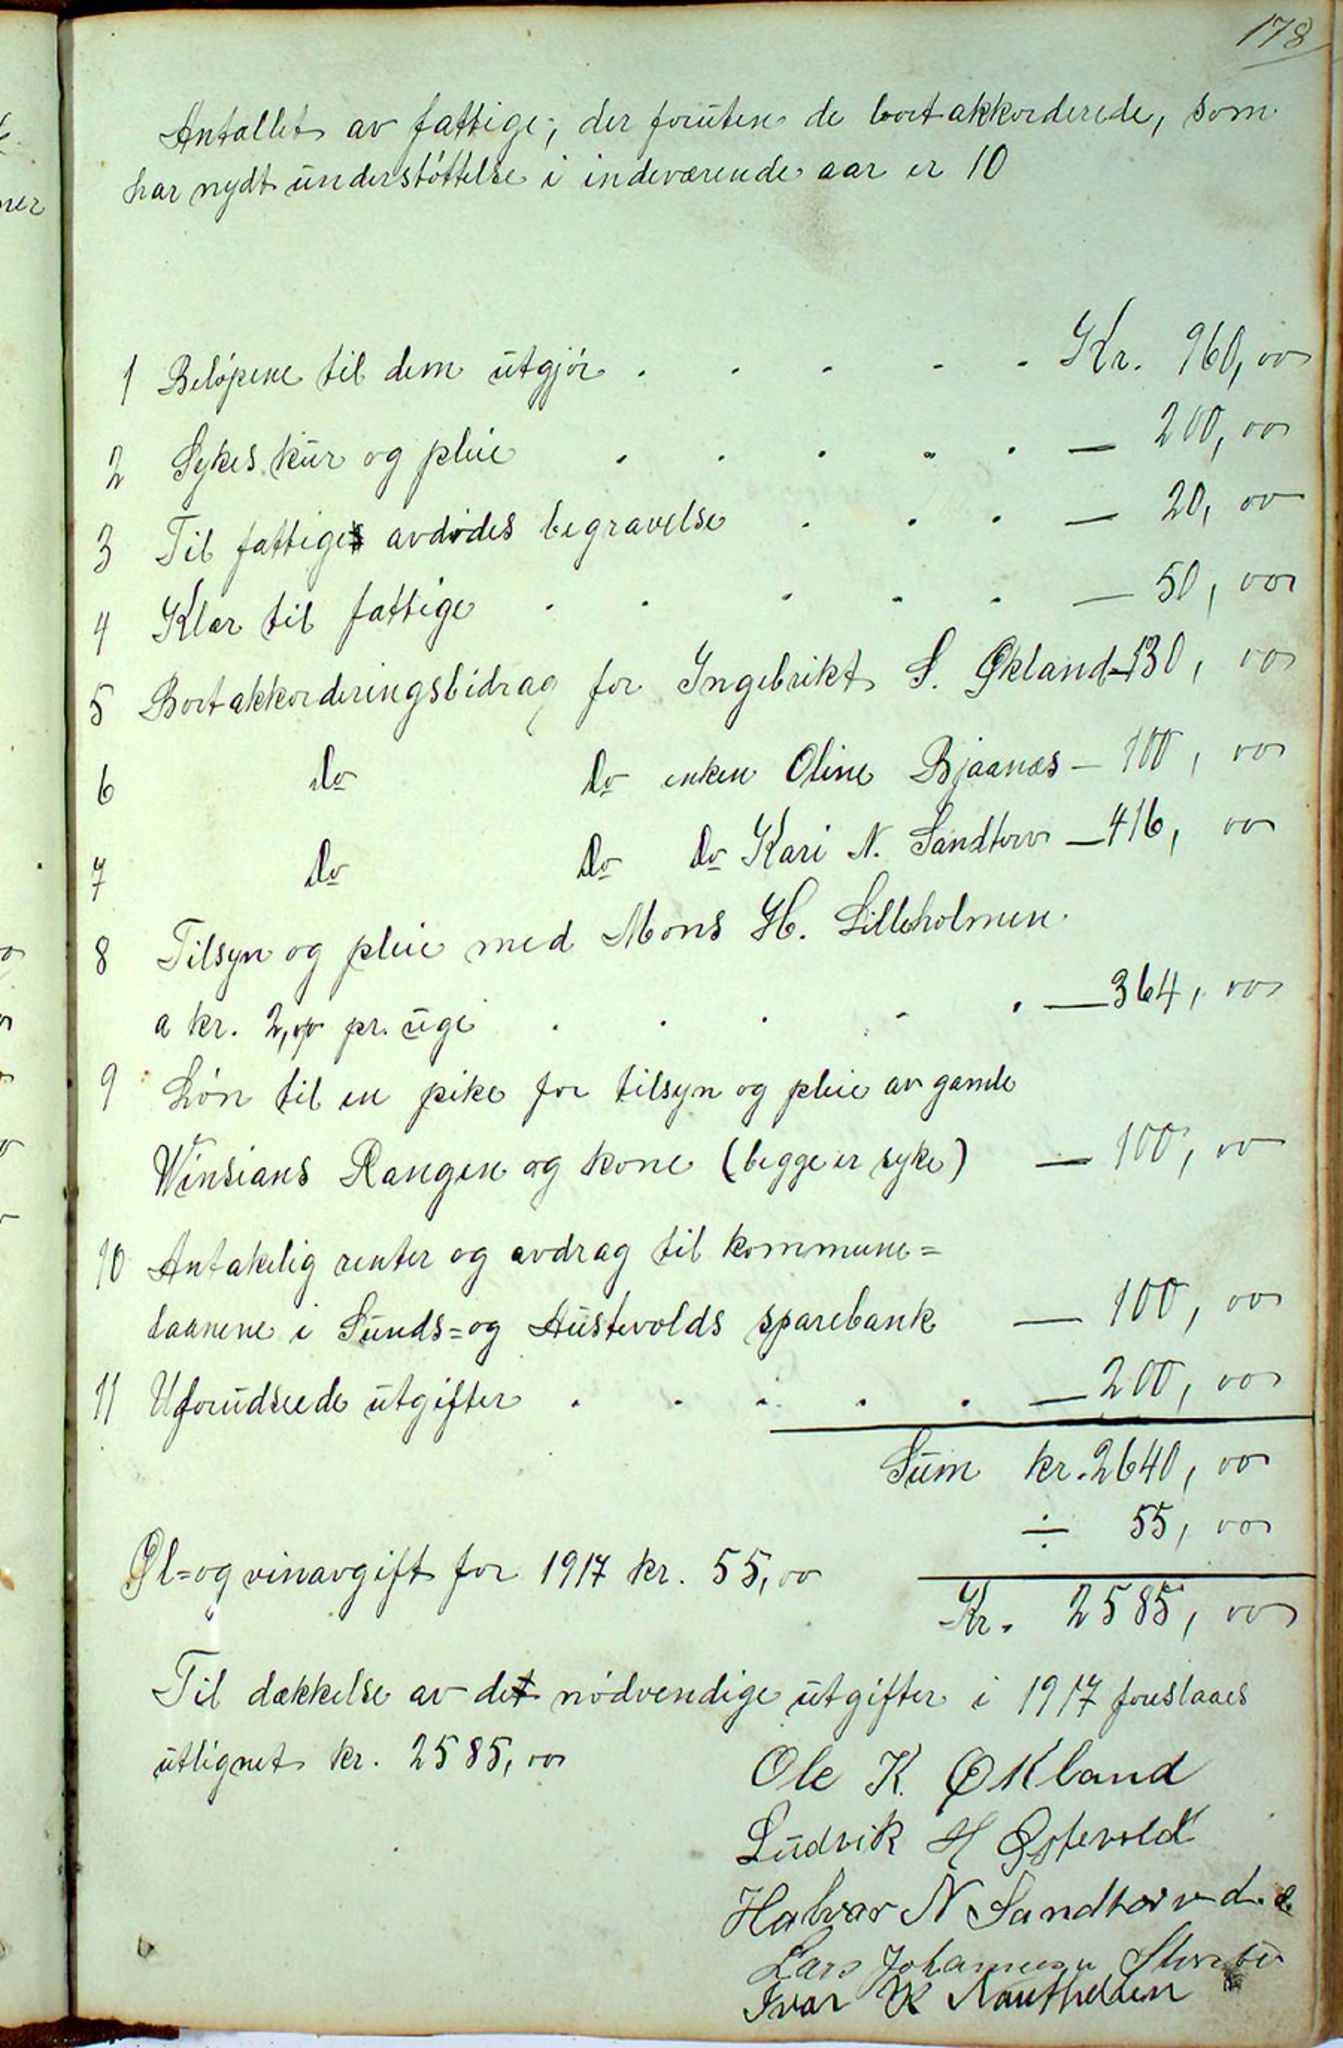 178
Antallet av fattige, der foruten de bortakkorderede, som
har nydt understøttelse i indeværende aar er 10
1 Beløpene til dem utgjør . . . . . Kr. 960,00
2 Sykes kur og pleie . . . . . — 200,00
3 Til fattiges avdødes begravelse . . . — 20,00
4 Klær til fattige . . . . . — 50,00
5 Bortakkorderingsbidrag for Ingebrikt S. Økland — 130,00
6 Do Do enken Oline Bjaanæs — 100,00
7 Do Do Do Kari N. Sandtorv — 416,00
8 Tilsyn og pleie med Mons H. Lilleholmen
a kr. 2,00 pr. uge . . . . . — 364,00
9 Løn til en pike for tilsyn og pleie av gamle
Winsians Rangen og kone (begge er syke) — 100,00
10 Antakelig renter og avdrag til kommune=
laanene i Sunds= og Austevolds sparebank — 100,00
11 Uforudseede utgifter . . . . . — 200,00
Sum kr. 2640,00
÷ 55,00
Øl= og vinavgift for 1917 kr. 55,00
Kr. 2585,00
Til dækkelse av det nødvendige utgifter i 1917 foreslaaes
utlignet kr. 2585,00
Ole K. Økland
Ludvik H Østervold
Halvar N Sandtorv d.e.
Lars Johannesen
Ivar K